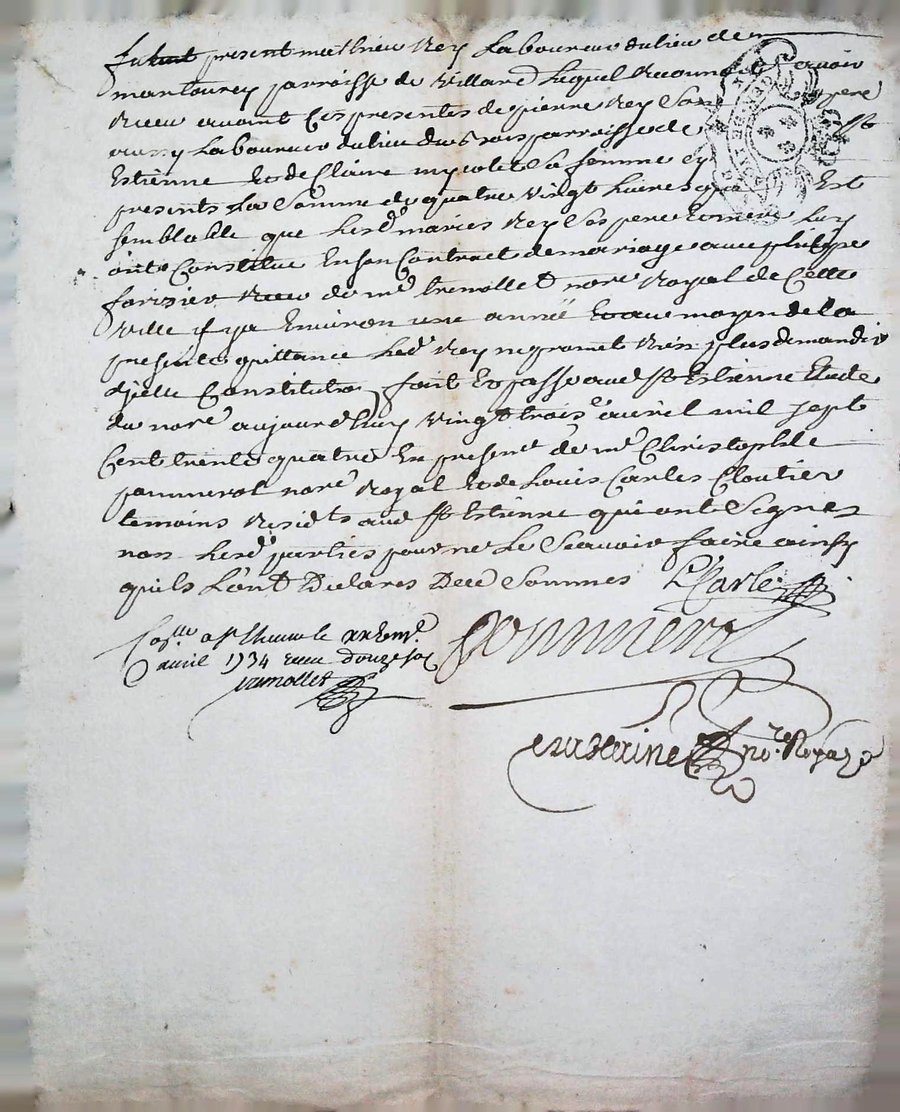 fut present mathieu Rey Laboureur du lieu de
montourey parroisse de Villard Lequel Reconnoit avoir
Receu avant Ces presentes de pierre Rey Son pere
aussy Laboureur du lieu du bois parroisse de St
Estienne Et de Claire Sa femme Cy
presents La Somme de quatre Vingt Livres Est
semblable que Lesd mariés Rey Ses pere Et mere Luy
ont Constitué En Son Contract de mariage avec philippe
forisier Receu de me tremollet nore Royal de Cette
Ville il ya Environ une année Et au moyen de la
presente quittance Led Rey ne promet Rien plus demander
d'jcelle Constitution, fait Et passé aud St Estienne Etude
du nore aujourd'huy Vingt trois e avril mil sept
Cent trente quatre En presence de me Christophle
pommerol nore Royal Et de Louis Carles Cloutier
temoins Residts aud St Estienne qui ont Signes
non Lesd parties pour ne Le Scavoir faire ainsy
quils L'ont Declarés De ce Sommes L Carle
Collé a St Etienne le
avril 1734 Receu douze sols
tremollet
Pommerol
nore. Royal